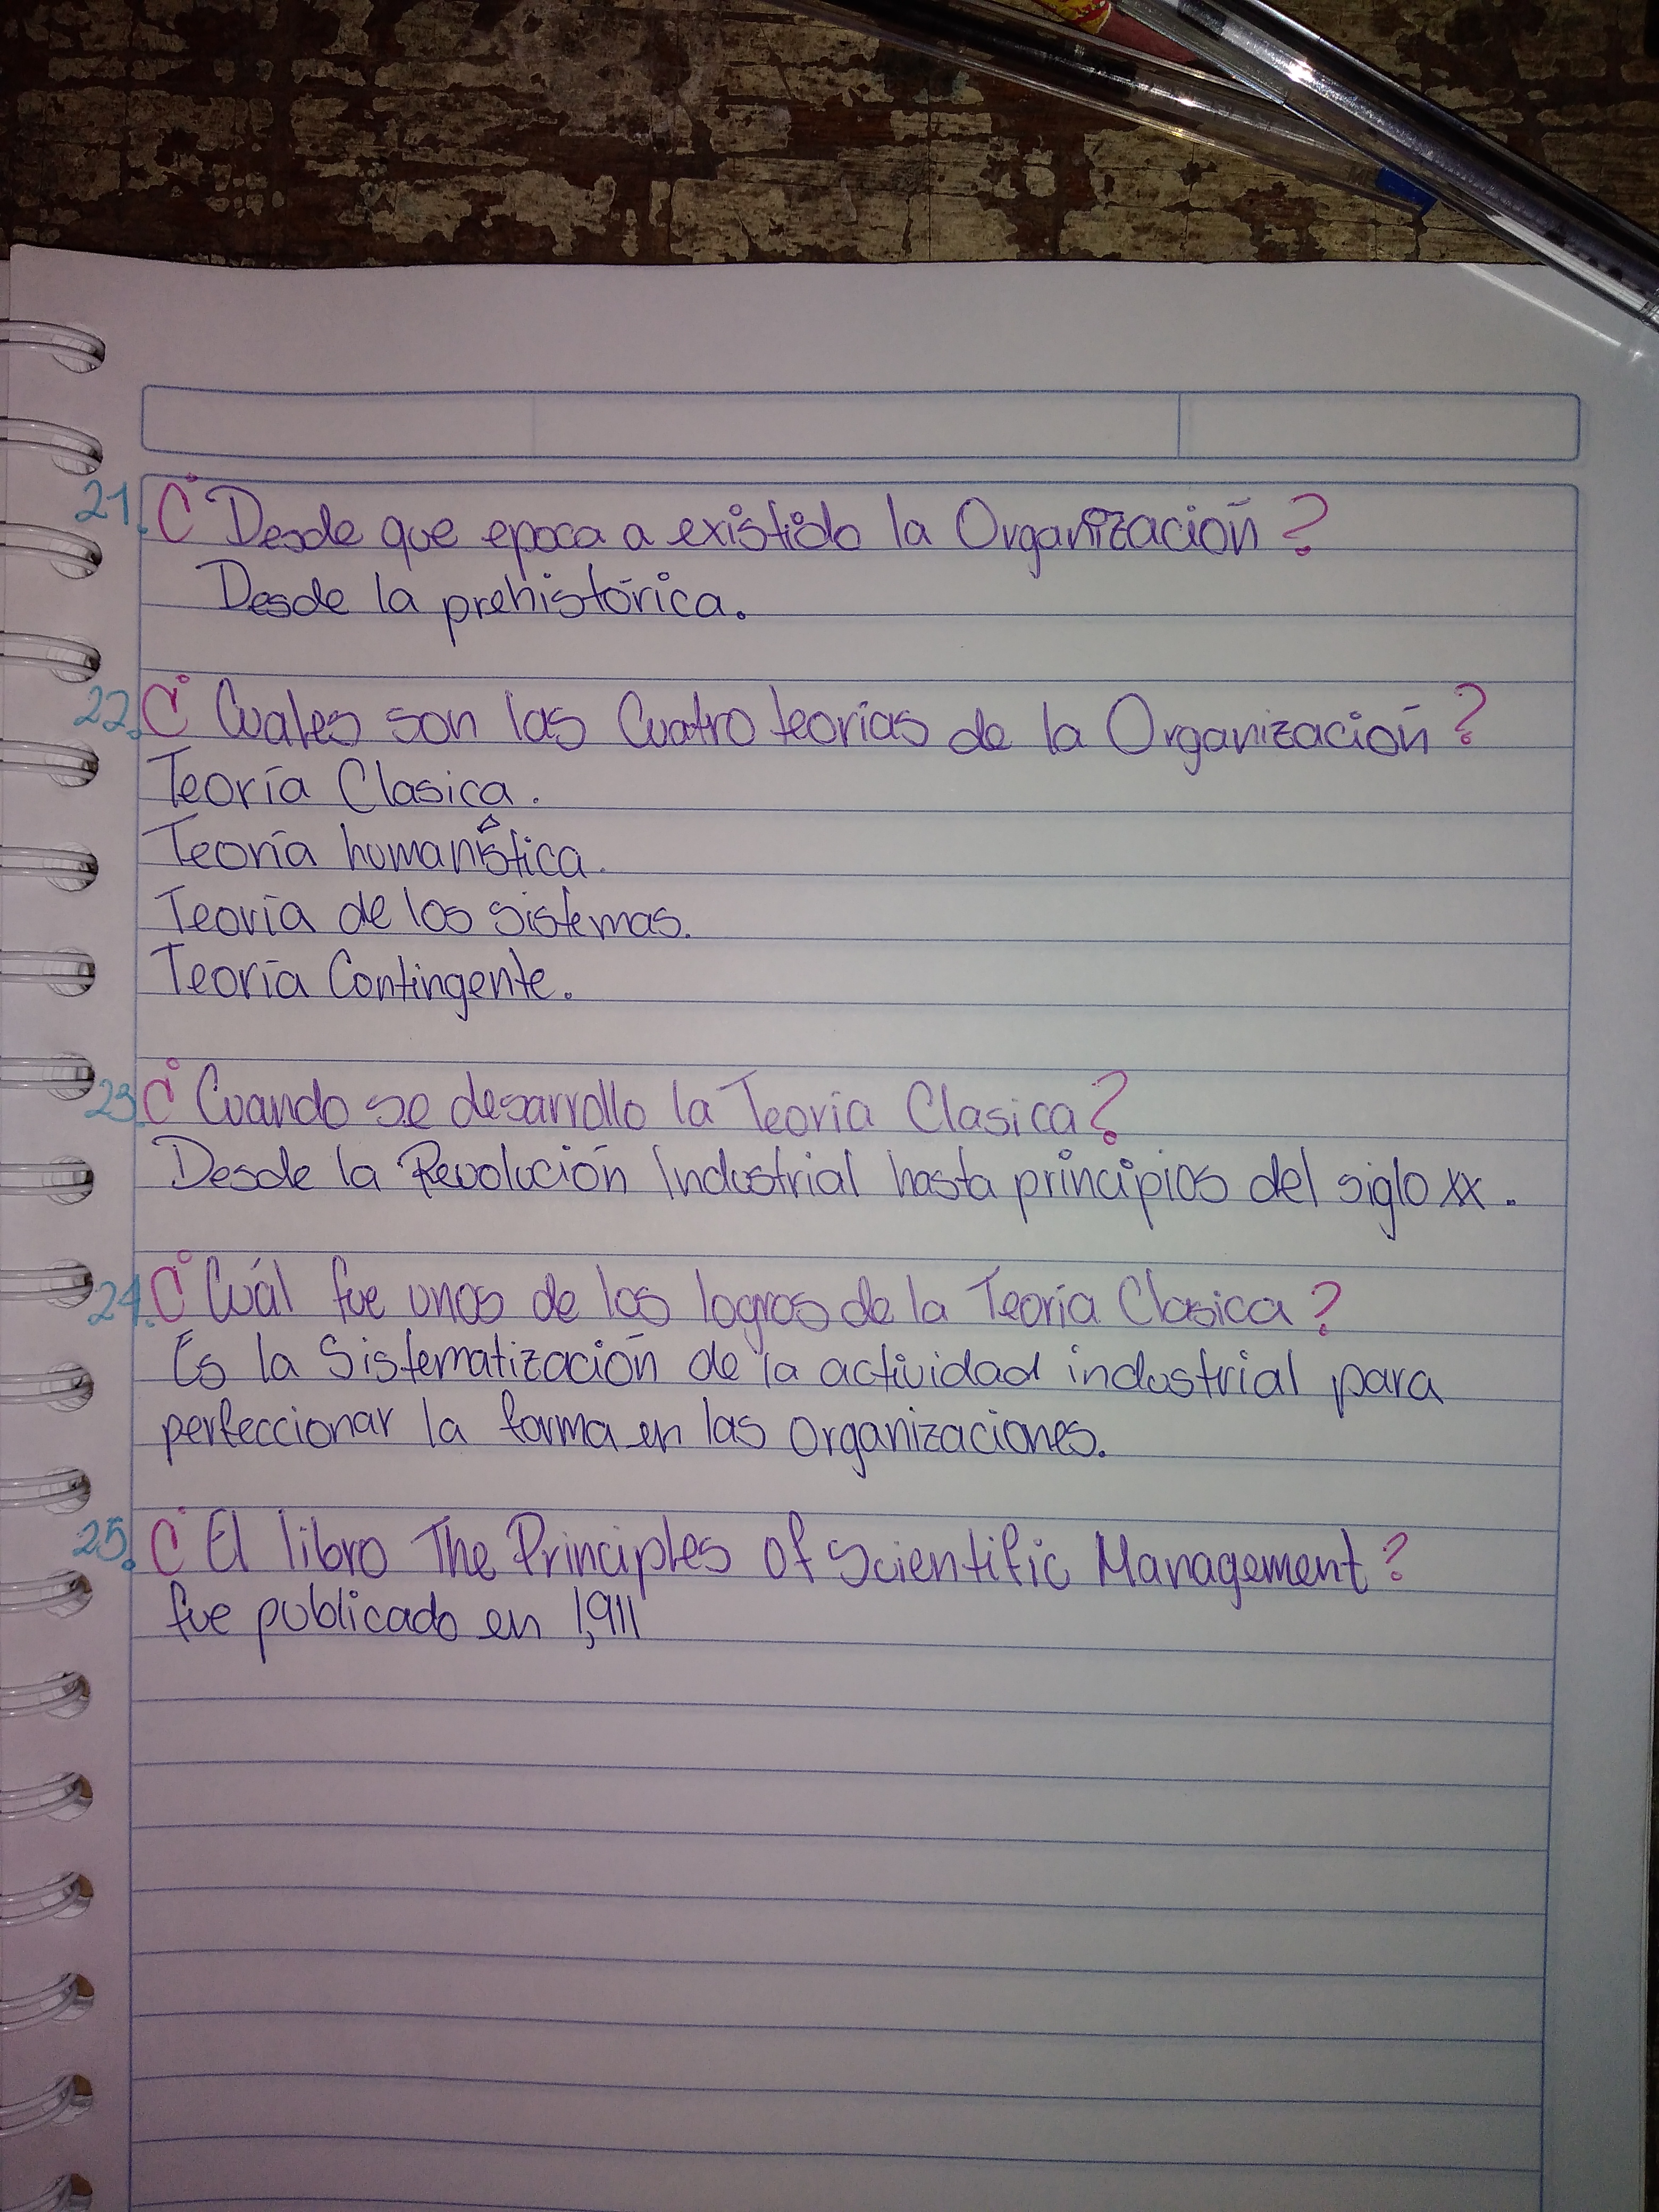 21. ¿Desde que epoca a existido la Organización?
Desde la prehistórica.
22. ¿Cuales son las Cuatro teorías de la Organización?
Teoría Clasica.
Teoría humanística.
Teoría de los sistemas.
Teoría Contingente.
23. ¿Cuando se desarrollo la Teoria Clasica?
Desde la Revolución Industrial hasta principios del siglo xx.
24. ¿Cuál fue unos de los logros de la Teoría Clasica?
Es la Sistematización de la actividad industrial para
perfeccionar la forma en las organizaciones.
25. ¿El libro The Principles of Scientific Management?
fue publicado en 1,911